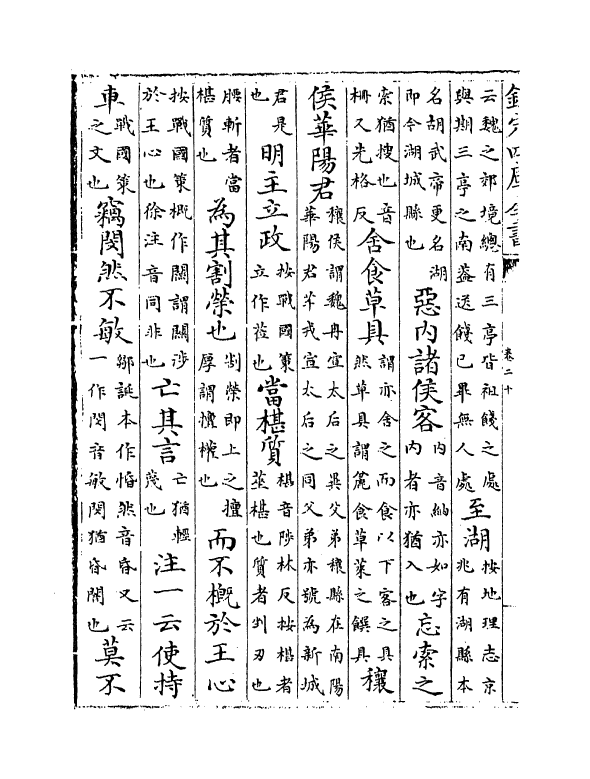 欽定四庫全書
卷二十
云魏之郊境總有三亭皆祖餞之處
與期三亭之南葢送餞已畢無人處
至湖
按地理志京
兆有湖縣本
名胡武帝更名湖
即今湖城縣也
惡内諸侯客
内音納亦如字
内者亦猶入也
忘索之
索猶搜也音
柵又先格反
舍食草具
謂亦舍之而食以下客之具
然草具謂麄食草萊之饌具
穰
侯華陽君
穰侯謂魏冉宣太后之異父弟穰縣在南陽
華陽君芊戎宣太后之同父弟亦號為新城
君是
也
明主立政
按戰國策
立作莅也
當椹質
椹音陟林反按椹者
莝椹也質者剉刃也
腰斬者當
椹質也
為其割榮也
割榮即上之擅
厚謂擅權也
而不概於王心
按戰國策概作關謂關涉
於王心也徐注音同非也
亡其言
亡猶輕
蔑也
注一云使持
車
戰國策
之文也
竊閔然不敏
鄒誕本作惽然音昏又云
一作閔音敏閔猶昏闇也
莫不